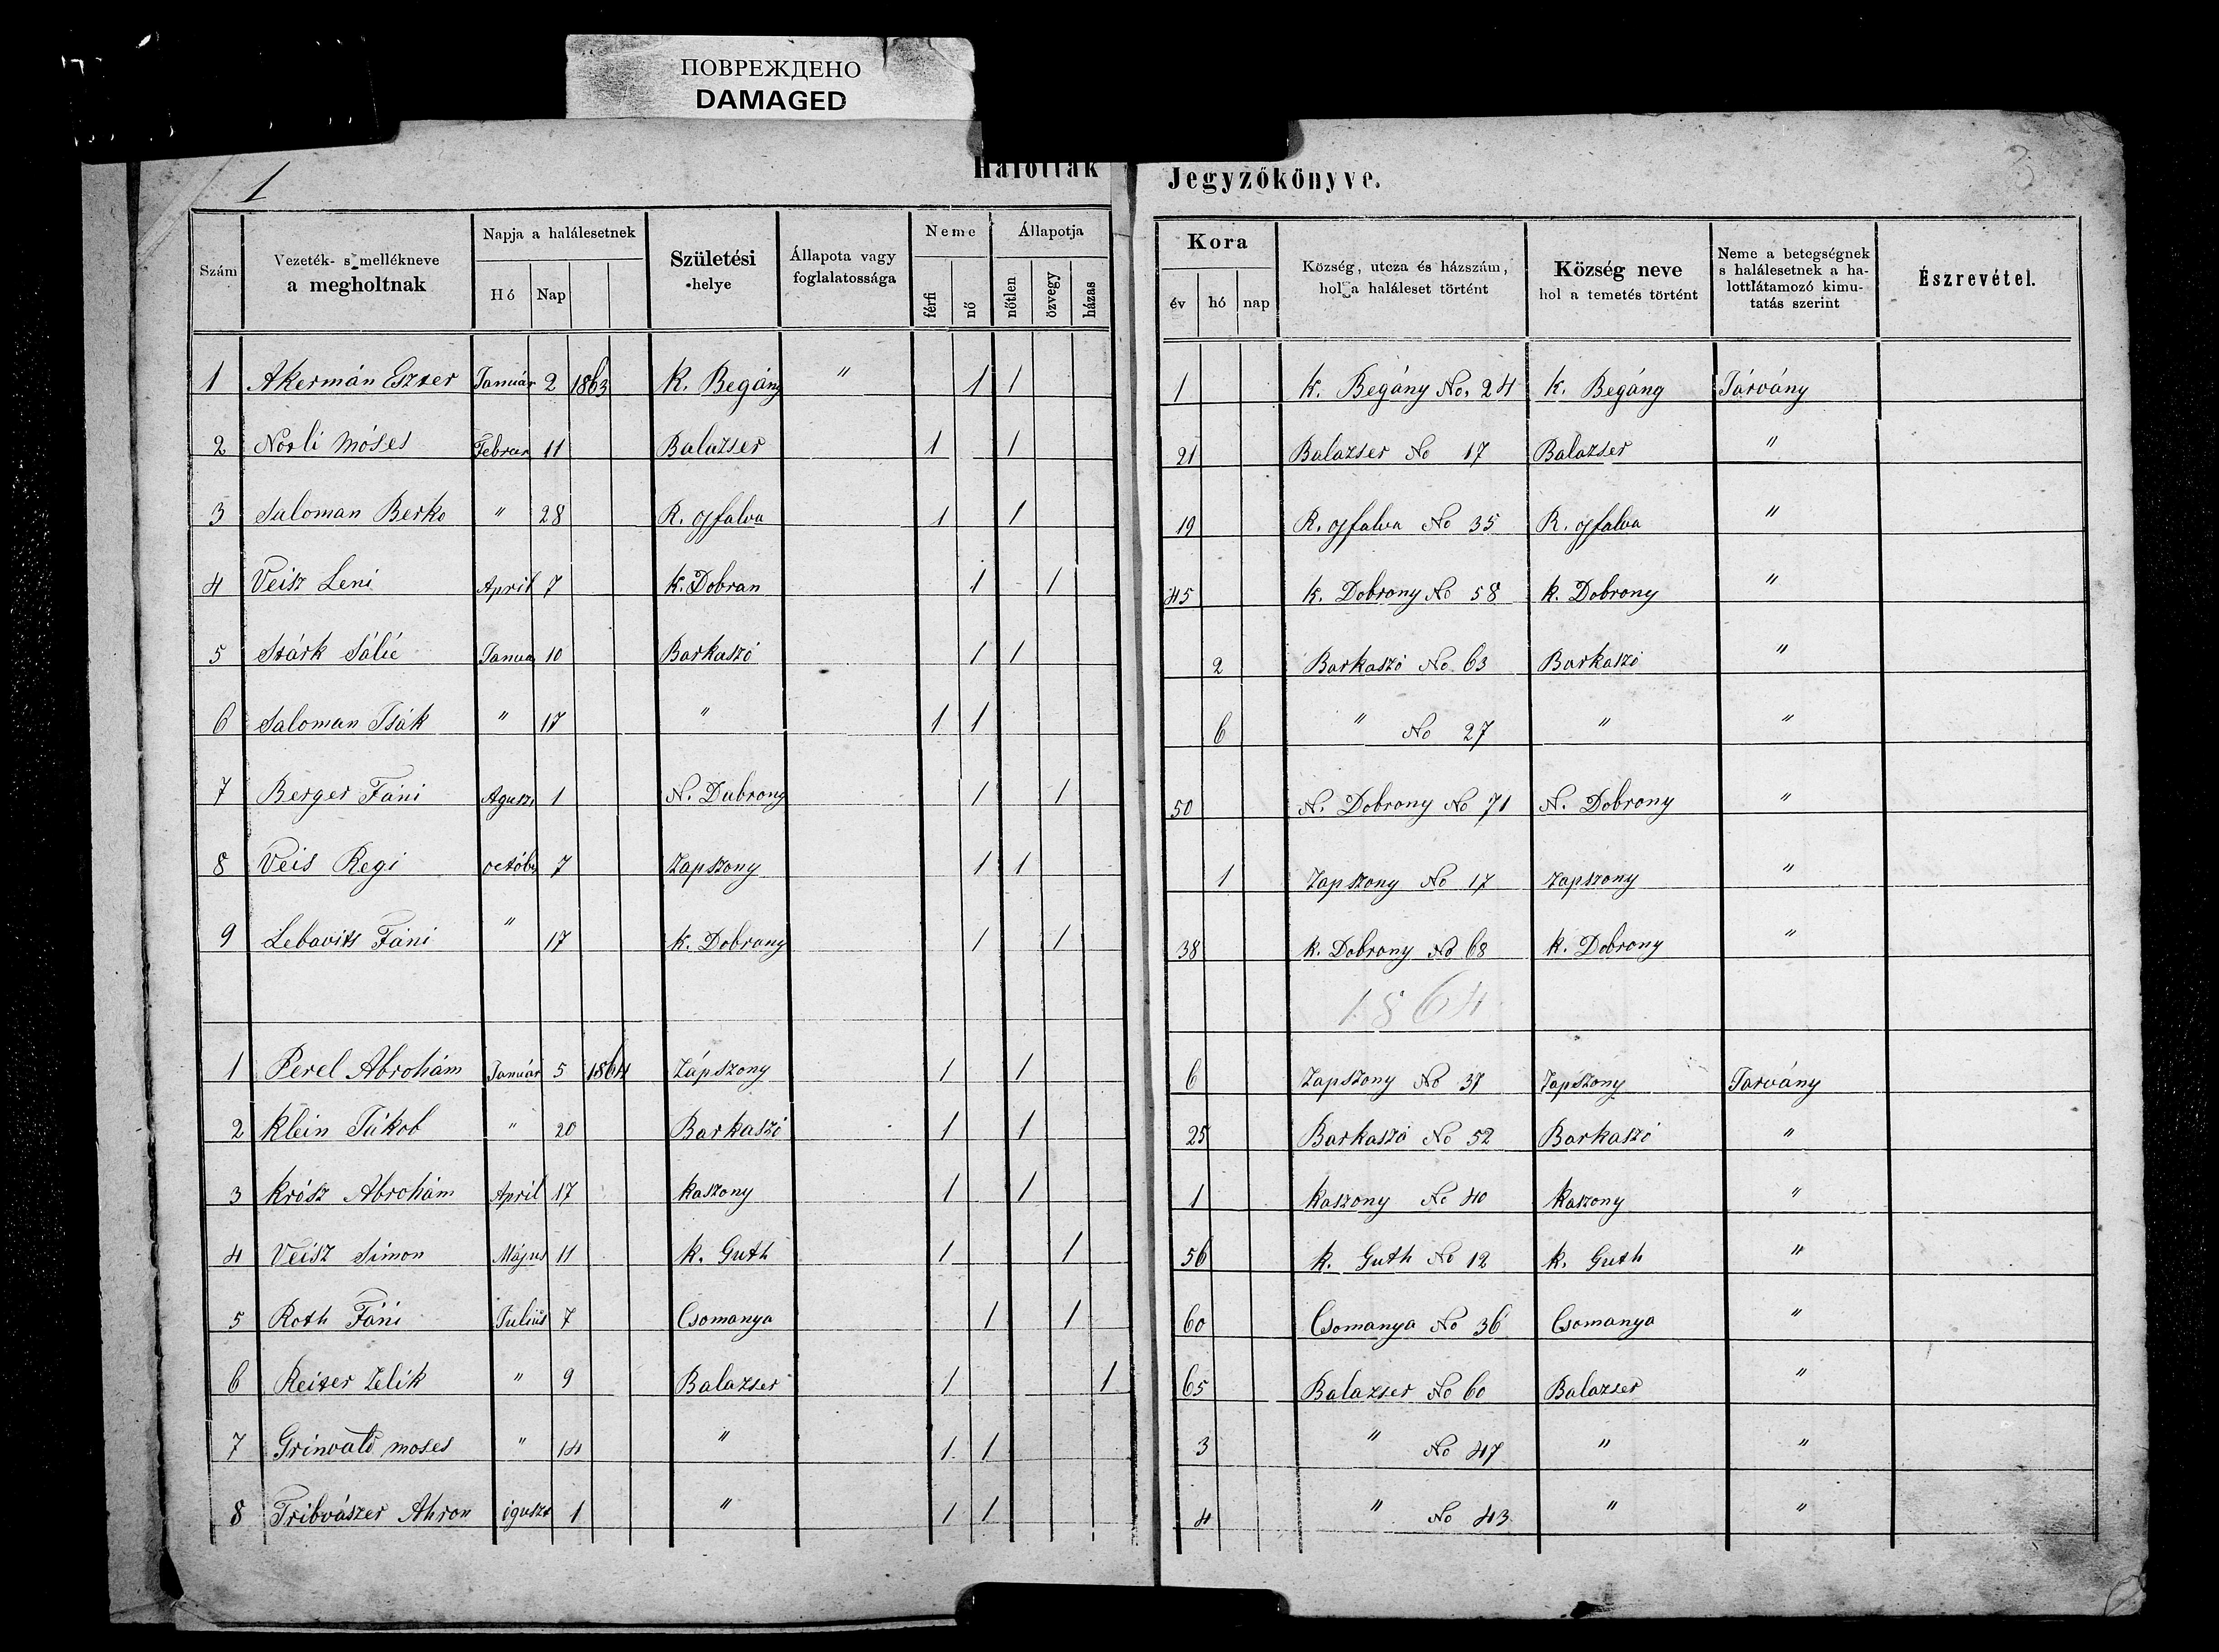 ПОВРЕЖДЕНО
DAMAGED
1
3
Halottak Jegyzőkönyve.
Szám
Vezeték- s mellékneve
a megholtnak
Napja a halálesetnek
Hó Nap
Születési
helye
Állapota vagy
foglalatossága
Neme
férfi nő
Állapotja
nőtlen özvegy házas
Kora
év hó nap
Község, utcza és házszám,
hol a haláleset történt
Község neve
hol a temetés történt
Neme a betegségnek
s halálesetnek a ha-
lottlátamozó kimu-
tatás szerint
Észrevétel.
1 Akermán Eszter Január 2 1863 K. Begány " 1 1 1 K. Begány No. 24 K. Begány Járvány
2 Noli Móses Februar 11 Balazser 1 1 21 Balazser No 17 Balazser "
3 Saloman Berko " 28 R. ojfalva 1 1 19 R. ojfalva No 35 R. ojfalva "
4 Veisz Leni April 7 K. Dobran 1 1 45 K. Dobrony No 58 K. Dobrony "
5 Stárk Sálie Janua 10 Barkaszó 1 1 2 Barkaszó No 63 Barkaszó "
6 Saloman Isák " 17 " 1 1 6 " No 27 " "
7 Berger Fáni Aguszt 1 N. Dabrony 1 1 50 N. Dobrony No 71 N. Dobrony "
8 Veis Regi octób 7 Zapszony 1 1 1 Zapszony No 17 Zapszony "
9 Lebavits Fáni " 17 K. Dobrany 1 1 38 K. Dobrony No 68 K. Dobrony "
1864
1 Perel Abrohám Január 5 1864 Zápszony 1 1 6 Zapszony No 37 Zapszony Jarvány
2 Klein Jákob " 20 Barkaszó 1 1 25 Barkaszó No 52 Barkaszó "
3 Krósz Abrohám April 17 Kaszony 1 1 1 Kaszony No 40 Kaszony "
4 Veisz Simon Május 11 K. Guth 1 1 56 K. Guth No 12 K. Guth "
5 Roth Fáni Julius 7 Csomanya 1 1 60 Csomanya No 36 Csomanya "
6 Reiter Zelik " 9 Balazser 1 1 65 Balazser No 60 Balazser "
7 Grinvald moses " 14 " 1 1 3 " No 47 " "
8 Tribvászer Ahron iguszt 1 " 1 1 4 " No 43 " "